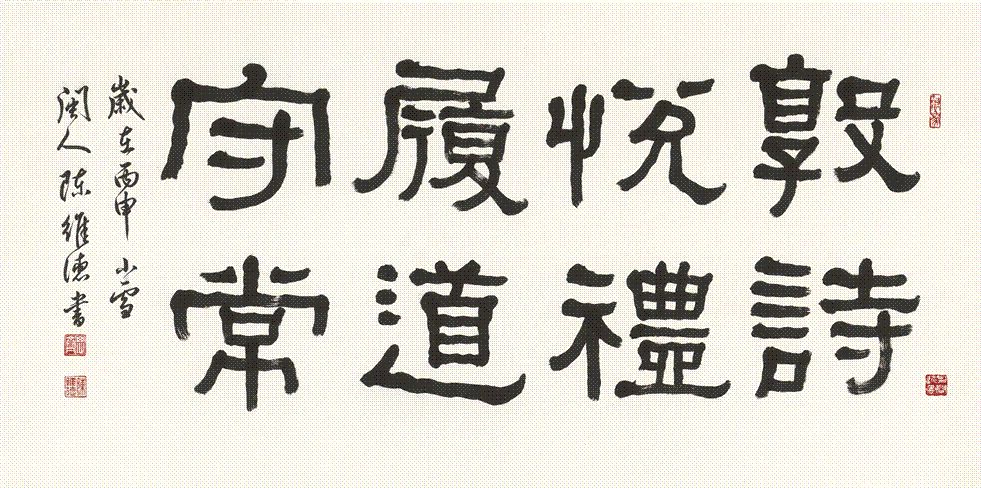 敦詩
悅禮
履道
守常
歲在丙申小雪
閩人陳維德書